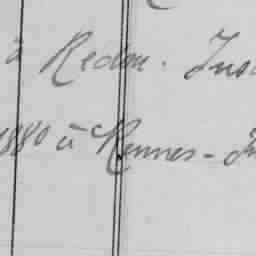 à Redon. Ins
1880 à Rennes - In